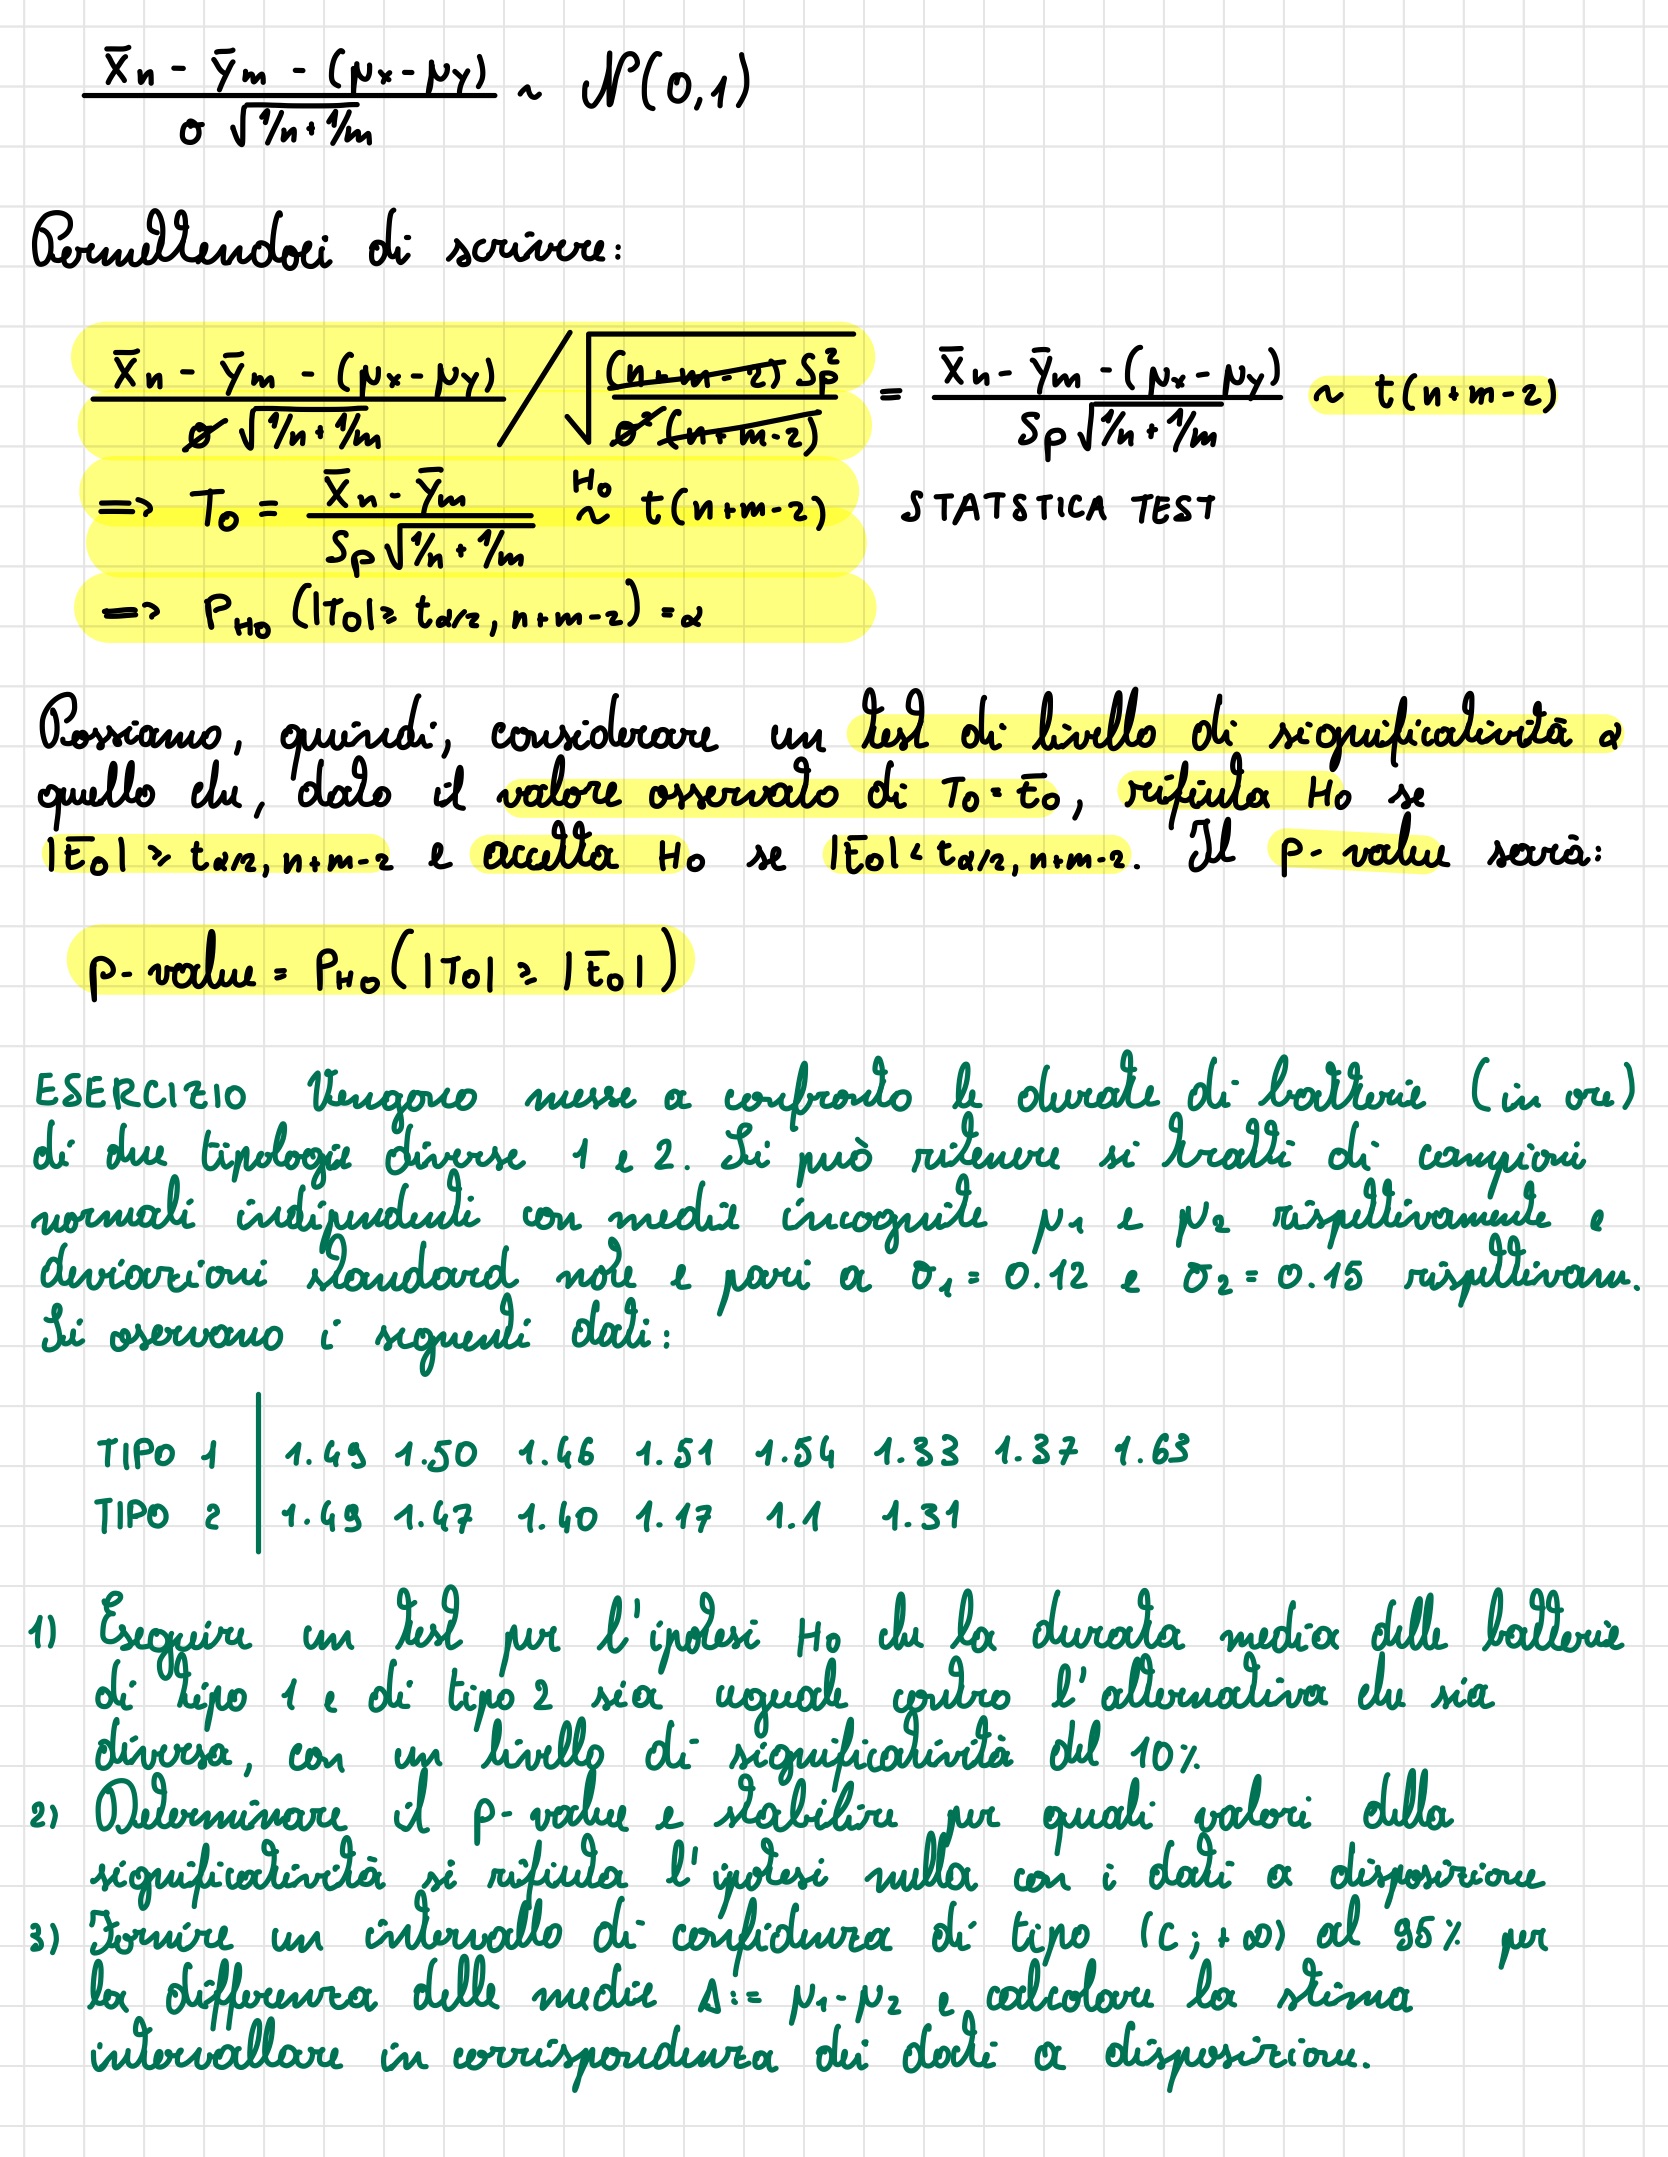 X̄n - Ȳm - (μx - μy) / σ √(1/n + 1/m) ~ N(0,1)
Permettendoci di scrivere:
X̄n - Ȳm - (μx - μy) / σ √(1/n + 1/m) / √((n+m-2) Sp² / σ² (n+m-2)) = X̄n - Ȳm - (μx - μy) / Sp √(1/n + 1/m) ~ t(n+m-2)
=> T0 = X̄n - Ȳm / Sp √(1/n + 1/m) ~ᴴ⁰ t(n+m-2) STATSTICA TEST
=> PH0 (|T0| ≥ tα/2, n+m-2) = α
Possiamo, quindi, considerare un test di livello di significatività α
quello che, dato il valore osservato di T0 = t̄0, rifiuta H0 se
|t̄0| ≥ tα/2, n+m-2 e accetta H0 se |t̄0| < tα/2, n+m-2. Il p-value sarà:
p-value = PH0 (|T0| ≥ |t̄0|)
ESERCIZIO Vengono messe a confronto le durate di batterie (in ore)
di due tipologie diverse 1 e 2. Si può ritenere si tratti di campioni
normali indipendenti con medie incognite μ1 e μ2 rispettivamente e
deviazioni standard note e pari a σ1 = 0.12 e σ2 = 0.15 rispettivam.
Si osservano i seguenti dati:
TIPO 1 | 1.49 1.50 1.46 1.51 1.54 1.33 1.37 1.63
TIPO 2 | 1.49 1.47 1.40 1.17 1.1 1.31
1) Eseguire un test per l'ipotesi H0 che la durata media delle batterie
di tipo 1 e di tipo 2 sia uguale contro l'alternativa che sia
diversa, con un livello di significatività del 10%
2) Determinare il p-value e stabilire per quali valori della
significatività si rifiuta l'ipotesi nulla con i dati a disposizione
3) Fornire un intervallo di confidenza di tipo (c; +∞) al 95% per
la differenza delle medie Δ := μ1 - μ2 e calcolare la stima
intervallare in corrispondenza dei dati a disposizione.